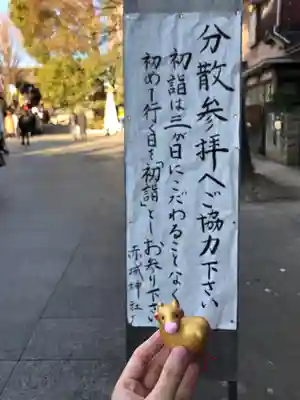 分散参拝へご協力下さい
初詣は三が日にこだわることなく
初めて行く日を「初詣」としお参り下さい
赤城神社